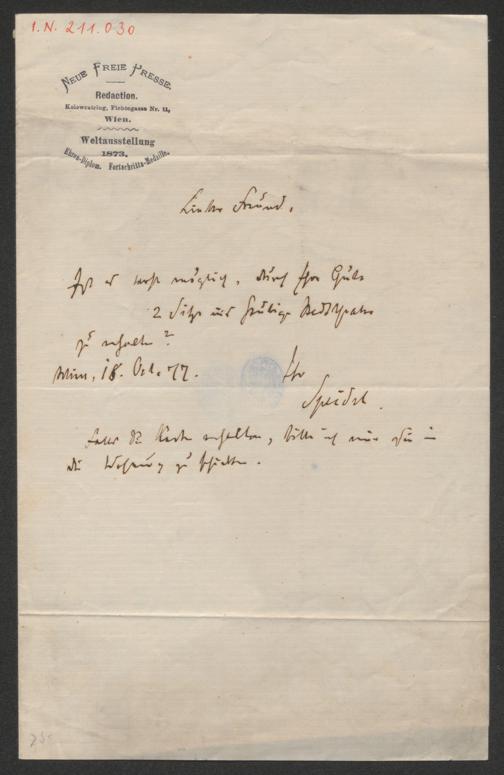 I.N. 211.030
NEUE FREIE PRESSE.
Redaction.
Kolowratring, Fichtegasse Nr. 11,
Wien.
Weltausstellung
1873.
Ehren-Diplom. Fortschritts-Medaille.
Lieber Freund,
Ist es wohl möglich, durch Ihre Güte
2 Sitze ins heutige Stadttheater
zu erhalten?
Wien, 18. Oct. 77.
Ihr
Speidel.
Karten erhalten, bitte ich mir sie in
die Wohnung zu schicken.